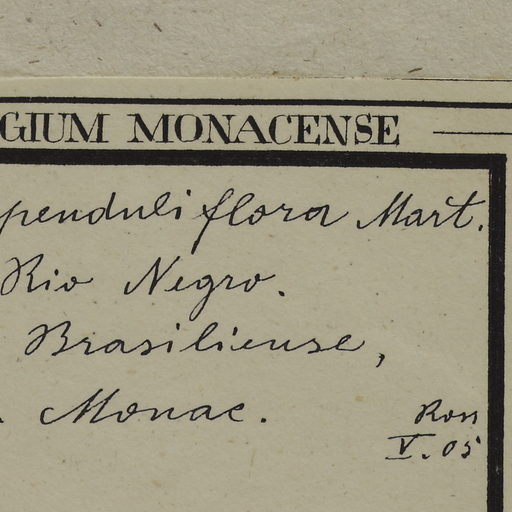 GIUM MONACENSE
penduliflora Mart.
Rio Negro.
Brasiliense,
. Monac.
Ross
V. 05